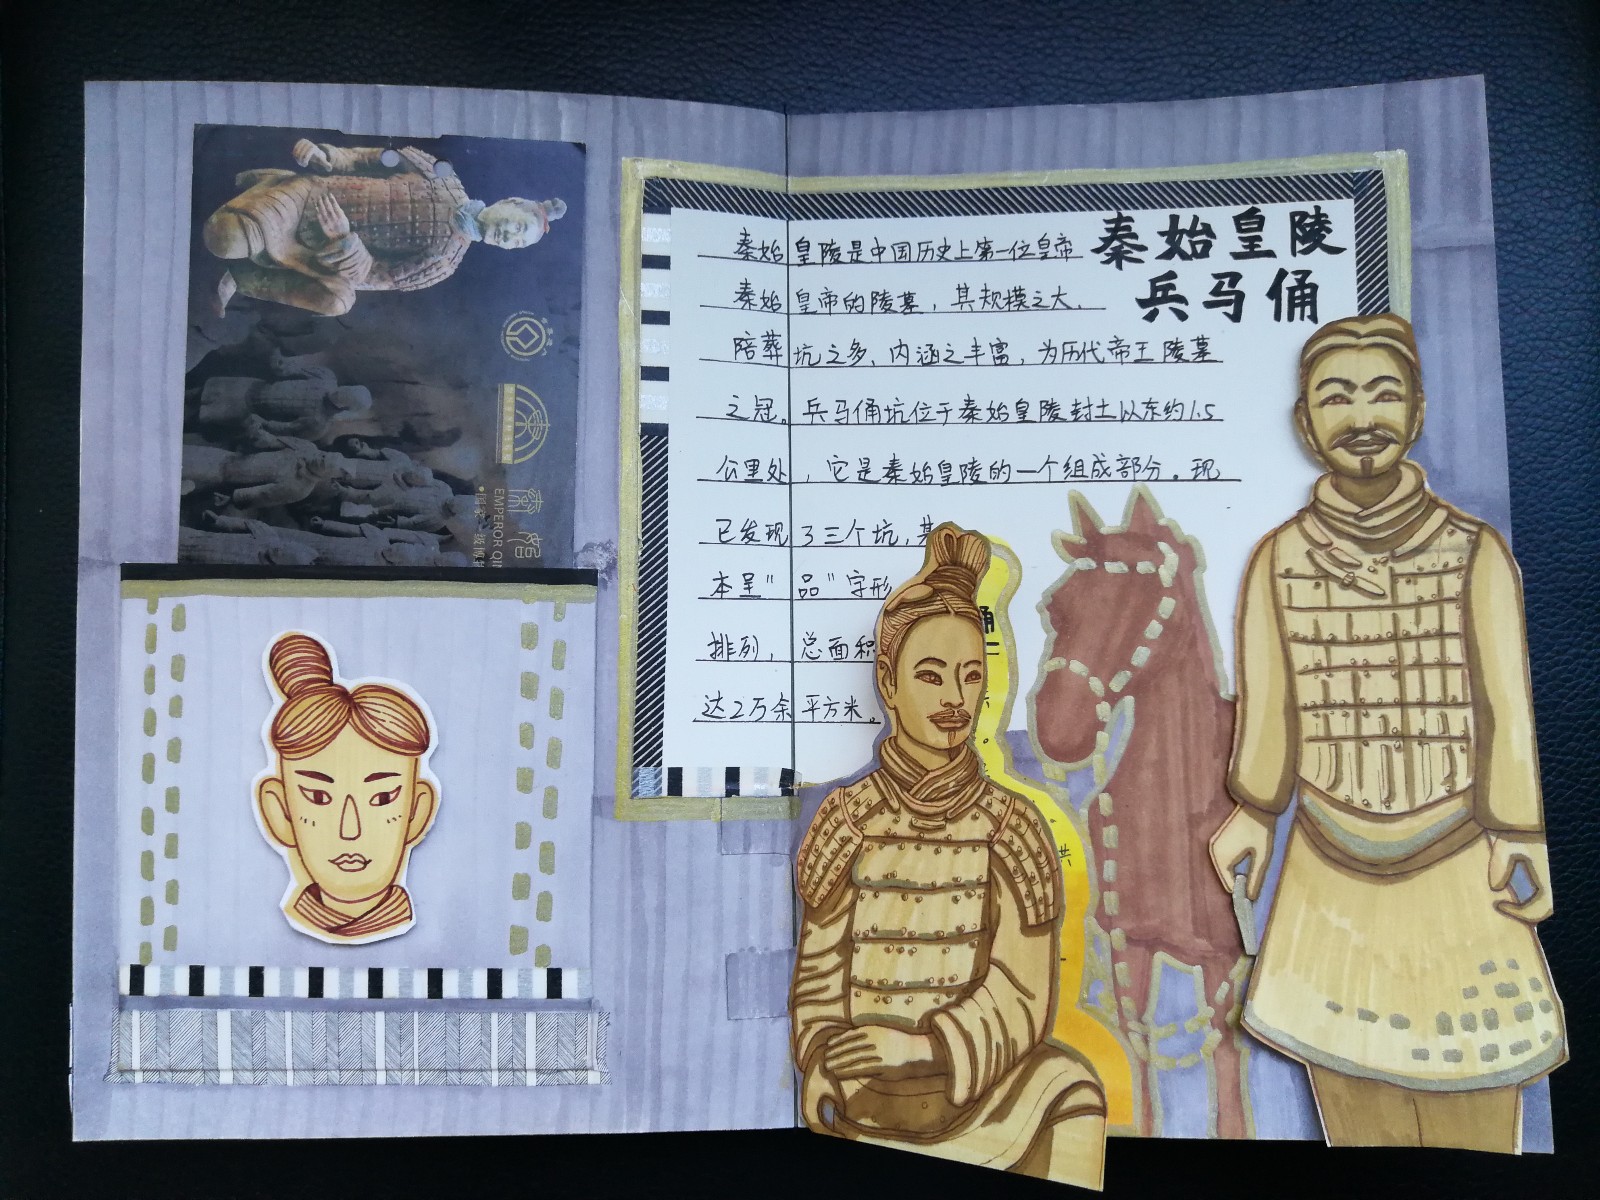 秦始皇陵
兵马俑
秦始皇陵是中国历史上第一位皇帝
秦始皇帝的陵墓，其规模之大、
陪葬坑之多、内涵之丰富，为历代帝王陵墓
之冠。兵马俑坑位于秦始皇陵封土以东约1.5
公里处，它是秦始皇陵的一个组成部分。现
已发现了三个坑，基
本呈"品"字形
排列，总面积
达2万余平方米。
EMPEROR QIN